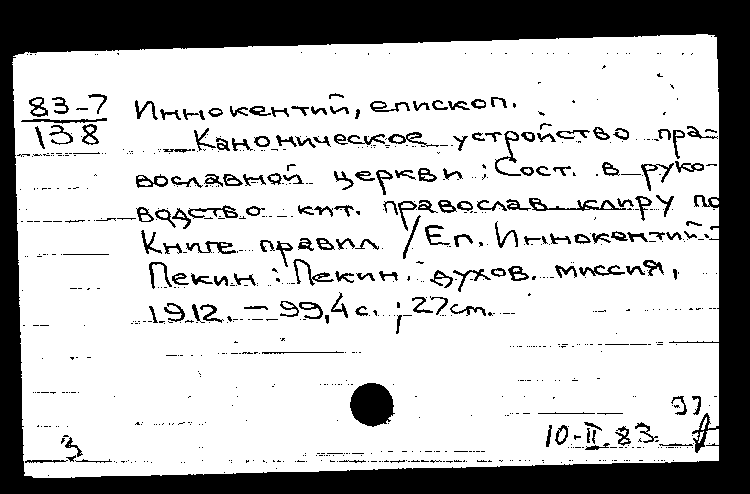 83-7
138
Иннокентий, епископ.
Каноническое устройство пра=
вославной церкви : Сост. в руко-
водство кит. православ. клиру по
Книге правил / Еп. Иннокентий.
Пекин : Пекин. духов. миссия,
1912. – 99,4 с. ; 27 см.
97
10-II.83.
3